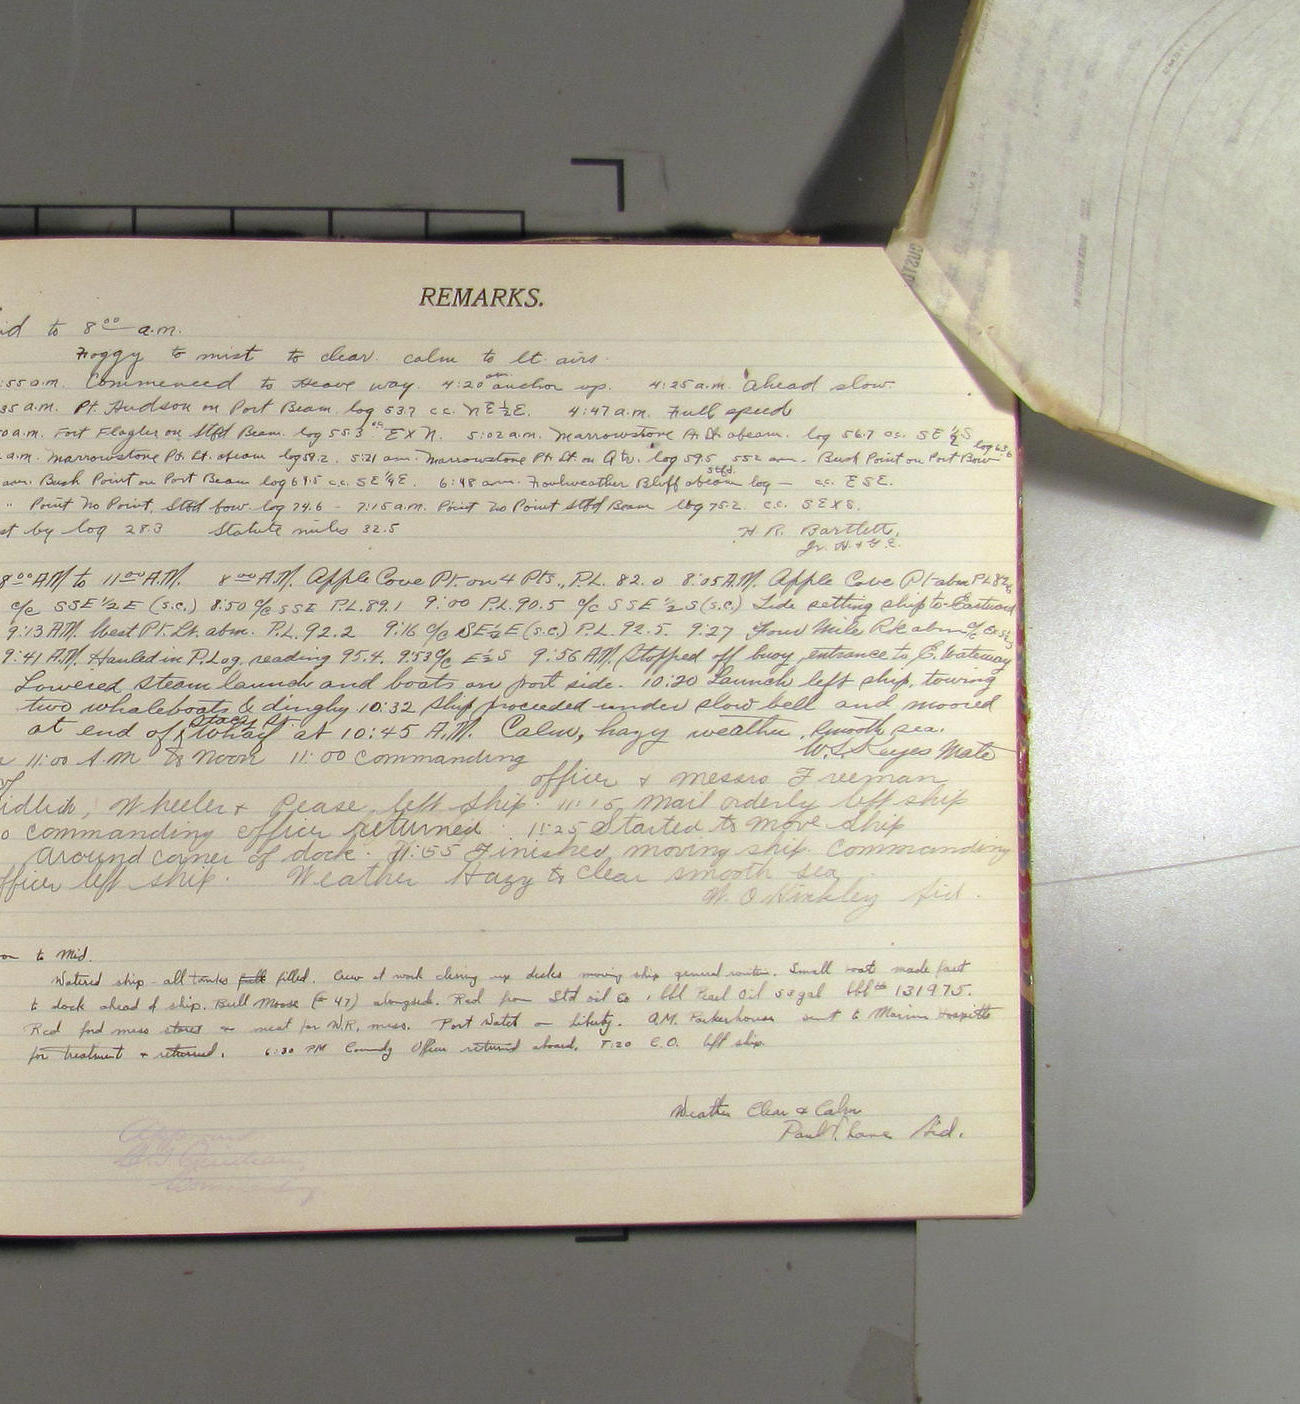 REMARKS.
to 8 00 a.m.
Foggy to mist to clear. calm to lt. airs.
:55 a.m. Commenced to Heave way. 4:20 am anchor up. 4:25 a.m. Ahead slow.
35 a.m. Pt. Hudson on Port Beam. log 53.7 c.c. N E ½ E. 4:47 a.m. Full speed
a.m. Fort Flagler on Stbd Beam. log 55.3 cc E X N. 5:02 a.m. Marrowstone Pt. Lt. abeam. log 56.7 cc. S E ½ S
a.m. Marrowstone Pt. Lt. abeam log 58.2. 5:21 am. Marrowstone Pt. Lt. on Qtr. log 59.5 552 am. Bush Point on Port Bow log 63.6
am. Bush Point on Port Beam log 69.5 c.c. SE ¼ E. 6:48 am. Foulweather Bluff abeam stbd. log — cc. E S E.
" Point No Point, Stbd bow. log 74.6 - 7:15 a.m. Point No Point Stbd Beam log 75.2. c.c. S E X S.
by log 28.3 Statute miles 32.5 H R. Bartlett,
Jr. H. & G. E.
8 00 A.M. to 11 00 A.M. 8 00 A.M. Apple Cove Pt. on 4 Pts., P.L. 82.0 8:05 A.M. Apple Cove Pt. abm P.L.
c/c SSE ½ E (s.c.) 8:50 c/c SSE P.L. 89.1 9:00 P.L. 90.5 c/c S S E ½ S (s.c.) Tide setting ship to Eastward
9:13 A.M. West Pt. Lt. abm. P.L. 92.2 9:16 c/c SE ½ E (s.c.) P.L. 92.5. 9:27 Four Mile Rk abm c/c
9:41 A.M. Hauled in P. Log, reading 95.4. 9:53 c/c E ½ S 9:56 A.M. Stopped off buoy, entrance to E. Waterway
Lowered steam launch and boats on port side. 10:20 Launch left ship, towing
two whaleboats & dinghy 10:32 Ship proceeded under slow bell and moored
at end of Stacy St. Wharf at 10:45 A.M. Calm, hazy weather, smooth sea.
11:00 A.M to Noon 11:00 Commanding W. S. Keyes Mate
officer & messrs Freeman
Wheeler & Pease left ship. 11:15 mail orderly left ship
commanding officer returned 11:25 Started to move Ship
around corner of dock. 11:55 Finished moving ship. Commanding
officer left ship. Weather Hazy to clear smooth sea
Aid.
to Mid.
Watered ship all tanks full filled. Crew at work clearing up decks moving ship general routine. Small boat made fast
to dock ahead of ship. Bull Moose (# 47) alongside. Recd from Std oil Co 1 bbl Pearl Oil 53 gal bbl # 131975.
Recd for mess stores & meat for W.R. mess. Port Watch on liberty. A.M. Parkerhouse sent to Marine Hospital
for treatment & returned. 6:30 PM Comndg Officer returned aboard. 7:20 C.O. left ship.
Weather Clear & Calm
Paul Aid.